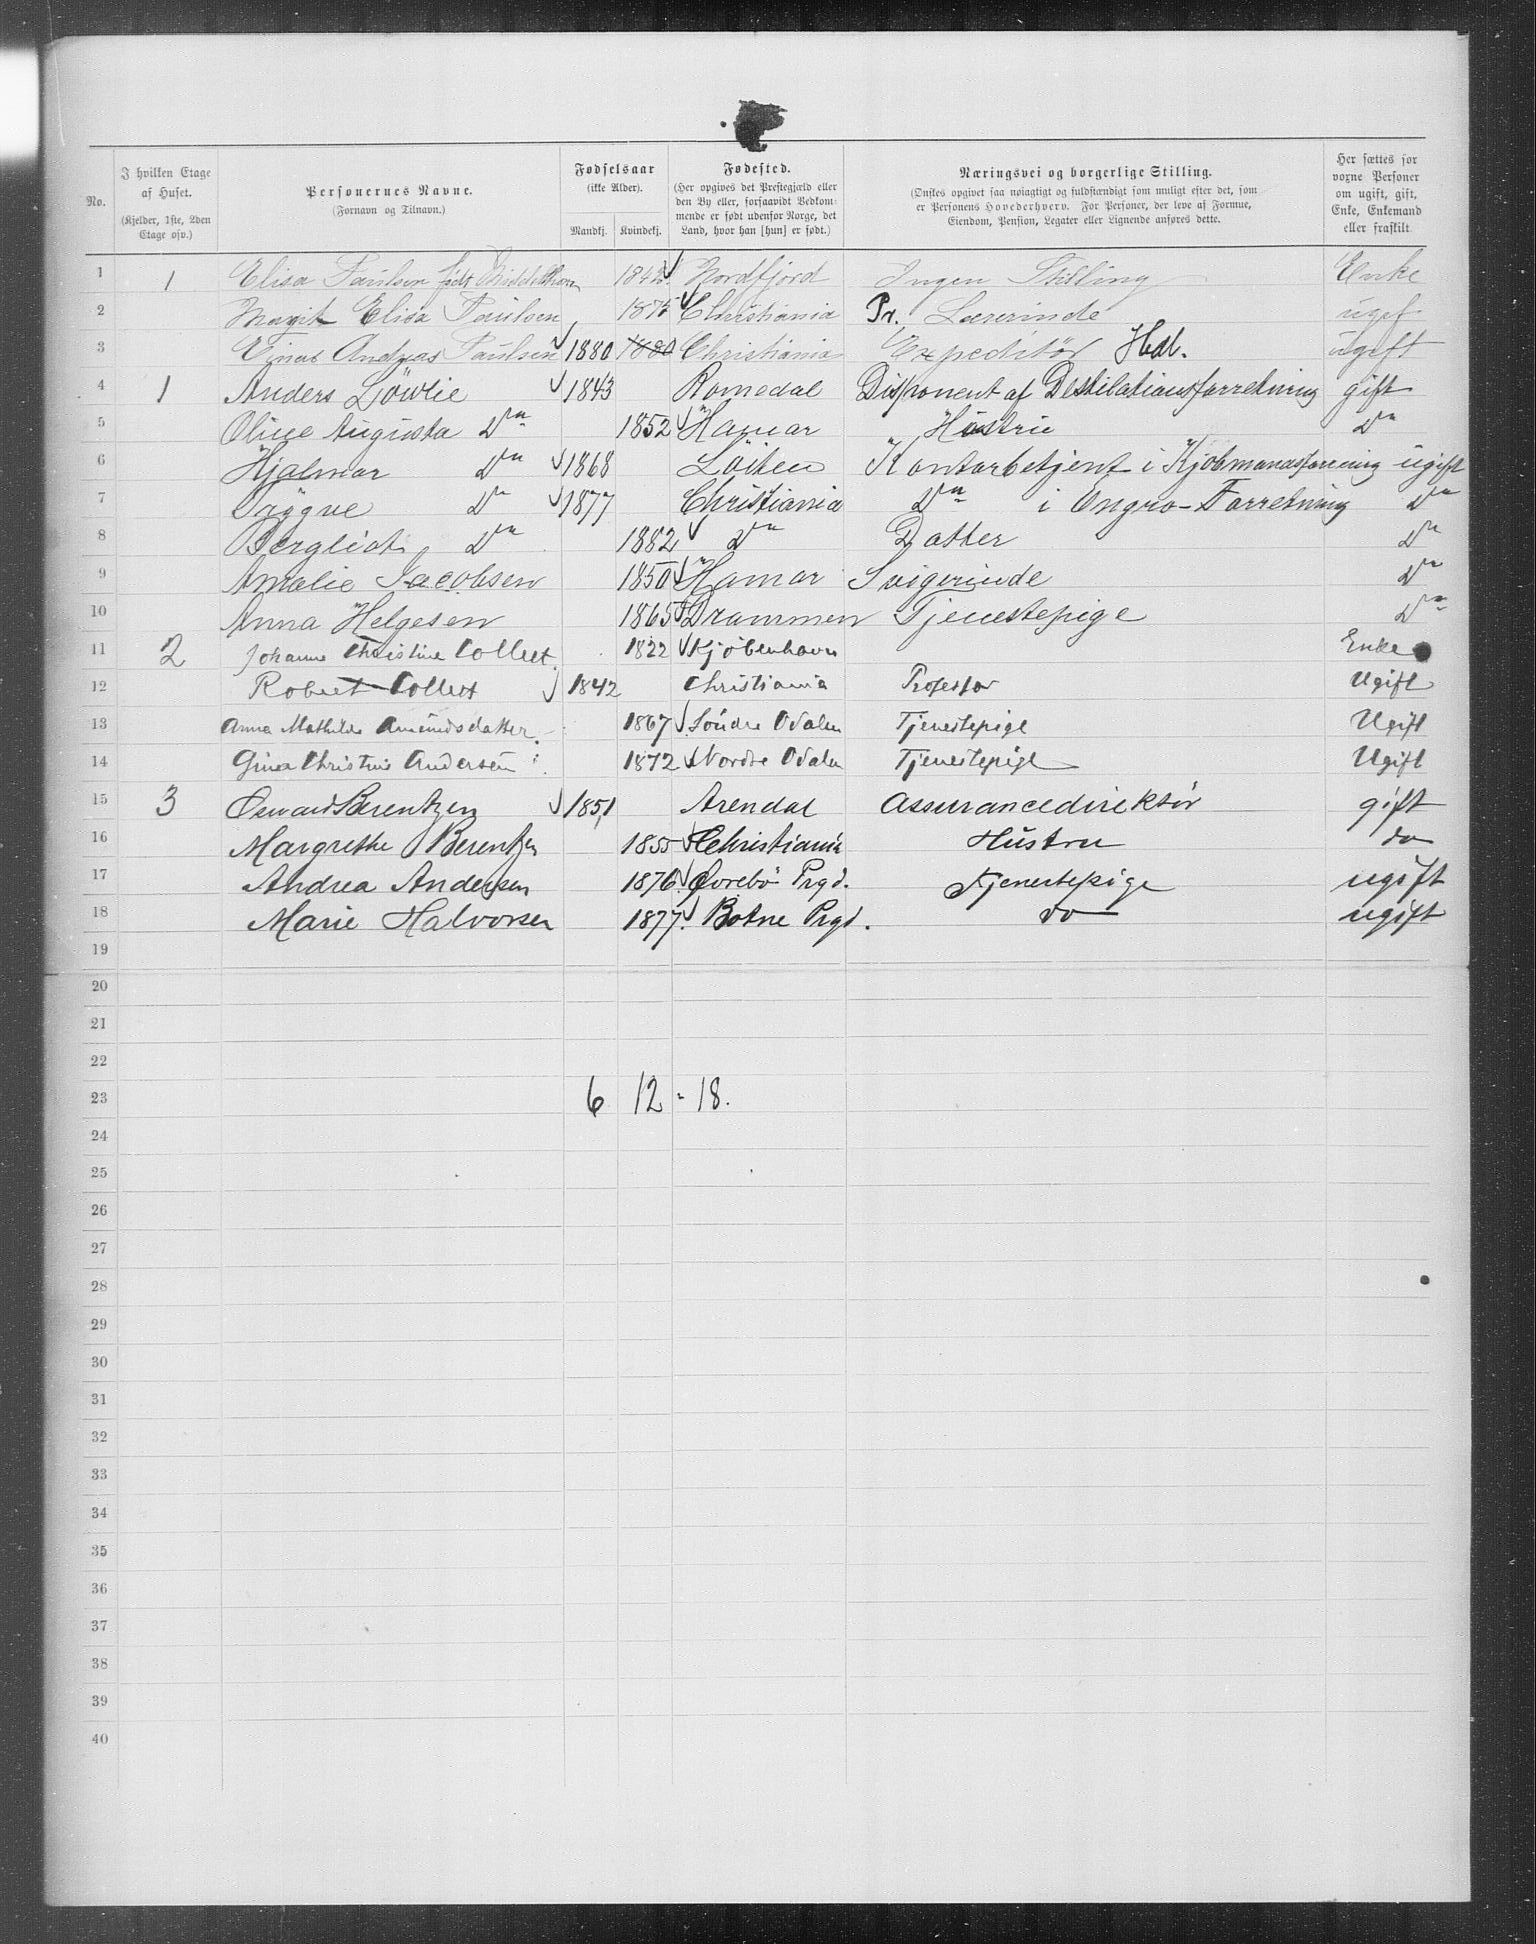 No.
I hvilken Etage af Huset.
(Kjelder, 1ste, 2den Etage osv.)
Personernes Navne.
(Fornavn og Tilnavn.)
Fødselsaar
(ikke Alder).
Mandkj. Kvindekj.
Fødested.
(Her opgives det Prestegjæld eller den By eller, forsaavidt Vedkommende er født udenfor Norge, det Land, hvor han [hun] er født.)
Næringsvei og borgerlige Stilling.
(Ønskes opgivet saa nøiagtigt og fuldstændigt som muligt efter det, som er Personens Hovederhverv. For Personer, der leve af Formue, Eiendom, Pension, Legater eller Lignende anføres dette.
Her sættes for voxne Personer om ugift, gift, Enke, Enkemand eller fraskilt.
1 1 Elisa Paulsen født 1842 Nordfjord Ingen Stilling Enke
2 Magit Elisa Paulsen 1875 Christiania Pr. Lærerinde ugift
3 Einar Andreas Paulsen 1880 1880 Christiania Expeditör Hdl. ugift
4 1 Anders Löwlie 1843 Romedal Disponent af Destilationsforretning gift
5 Olise Augusta Do 1852 Hamar Hustru Do
6 Hjalmar Do 1868 Löiten Kontorbetjent i Kjöbmandsforening ugift
7 Yngve Do 1877 Christiania Do i Engro-Forretning Do
8 Bergliot Do 1882 Do Datter Do
9 Amalie Jacobsen 1850 Hamar Svigerinde Do
10 Anna Helgesen 1865 Drammen Tjenestepige Do
11 2 Johanne Christine Collett 1822 Kjøbenhavn Enke
12 Robert Collett 1842 Christiania Professor Ugift
13 Anna Mathilde Amundsdatter 1867 Söndre Odalen Tjenestepige Ugift
14 Gina Christine Andersen 1872 Nordre Odalen Tjenestepige Ugift
15 3 Osward Berentzen 1851 Arendal Assurancedirektör gift
16 Margrethe Berentzen 1855 Christiania Hustru do
17 Andrea Andersen 1876 Øvrebö Prgd. Tjenestepige ugift
18 Marie Halvorsen 1877 Botne Prgd. do ugift
19
20
21
22
23 6 12 = 18.
24
25
26
27
28
29
30
31
32
33
34
35
36
37
38
39
40